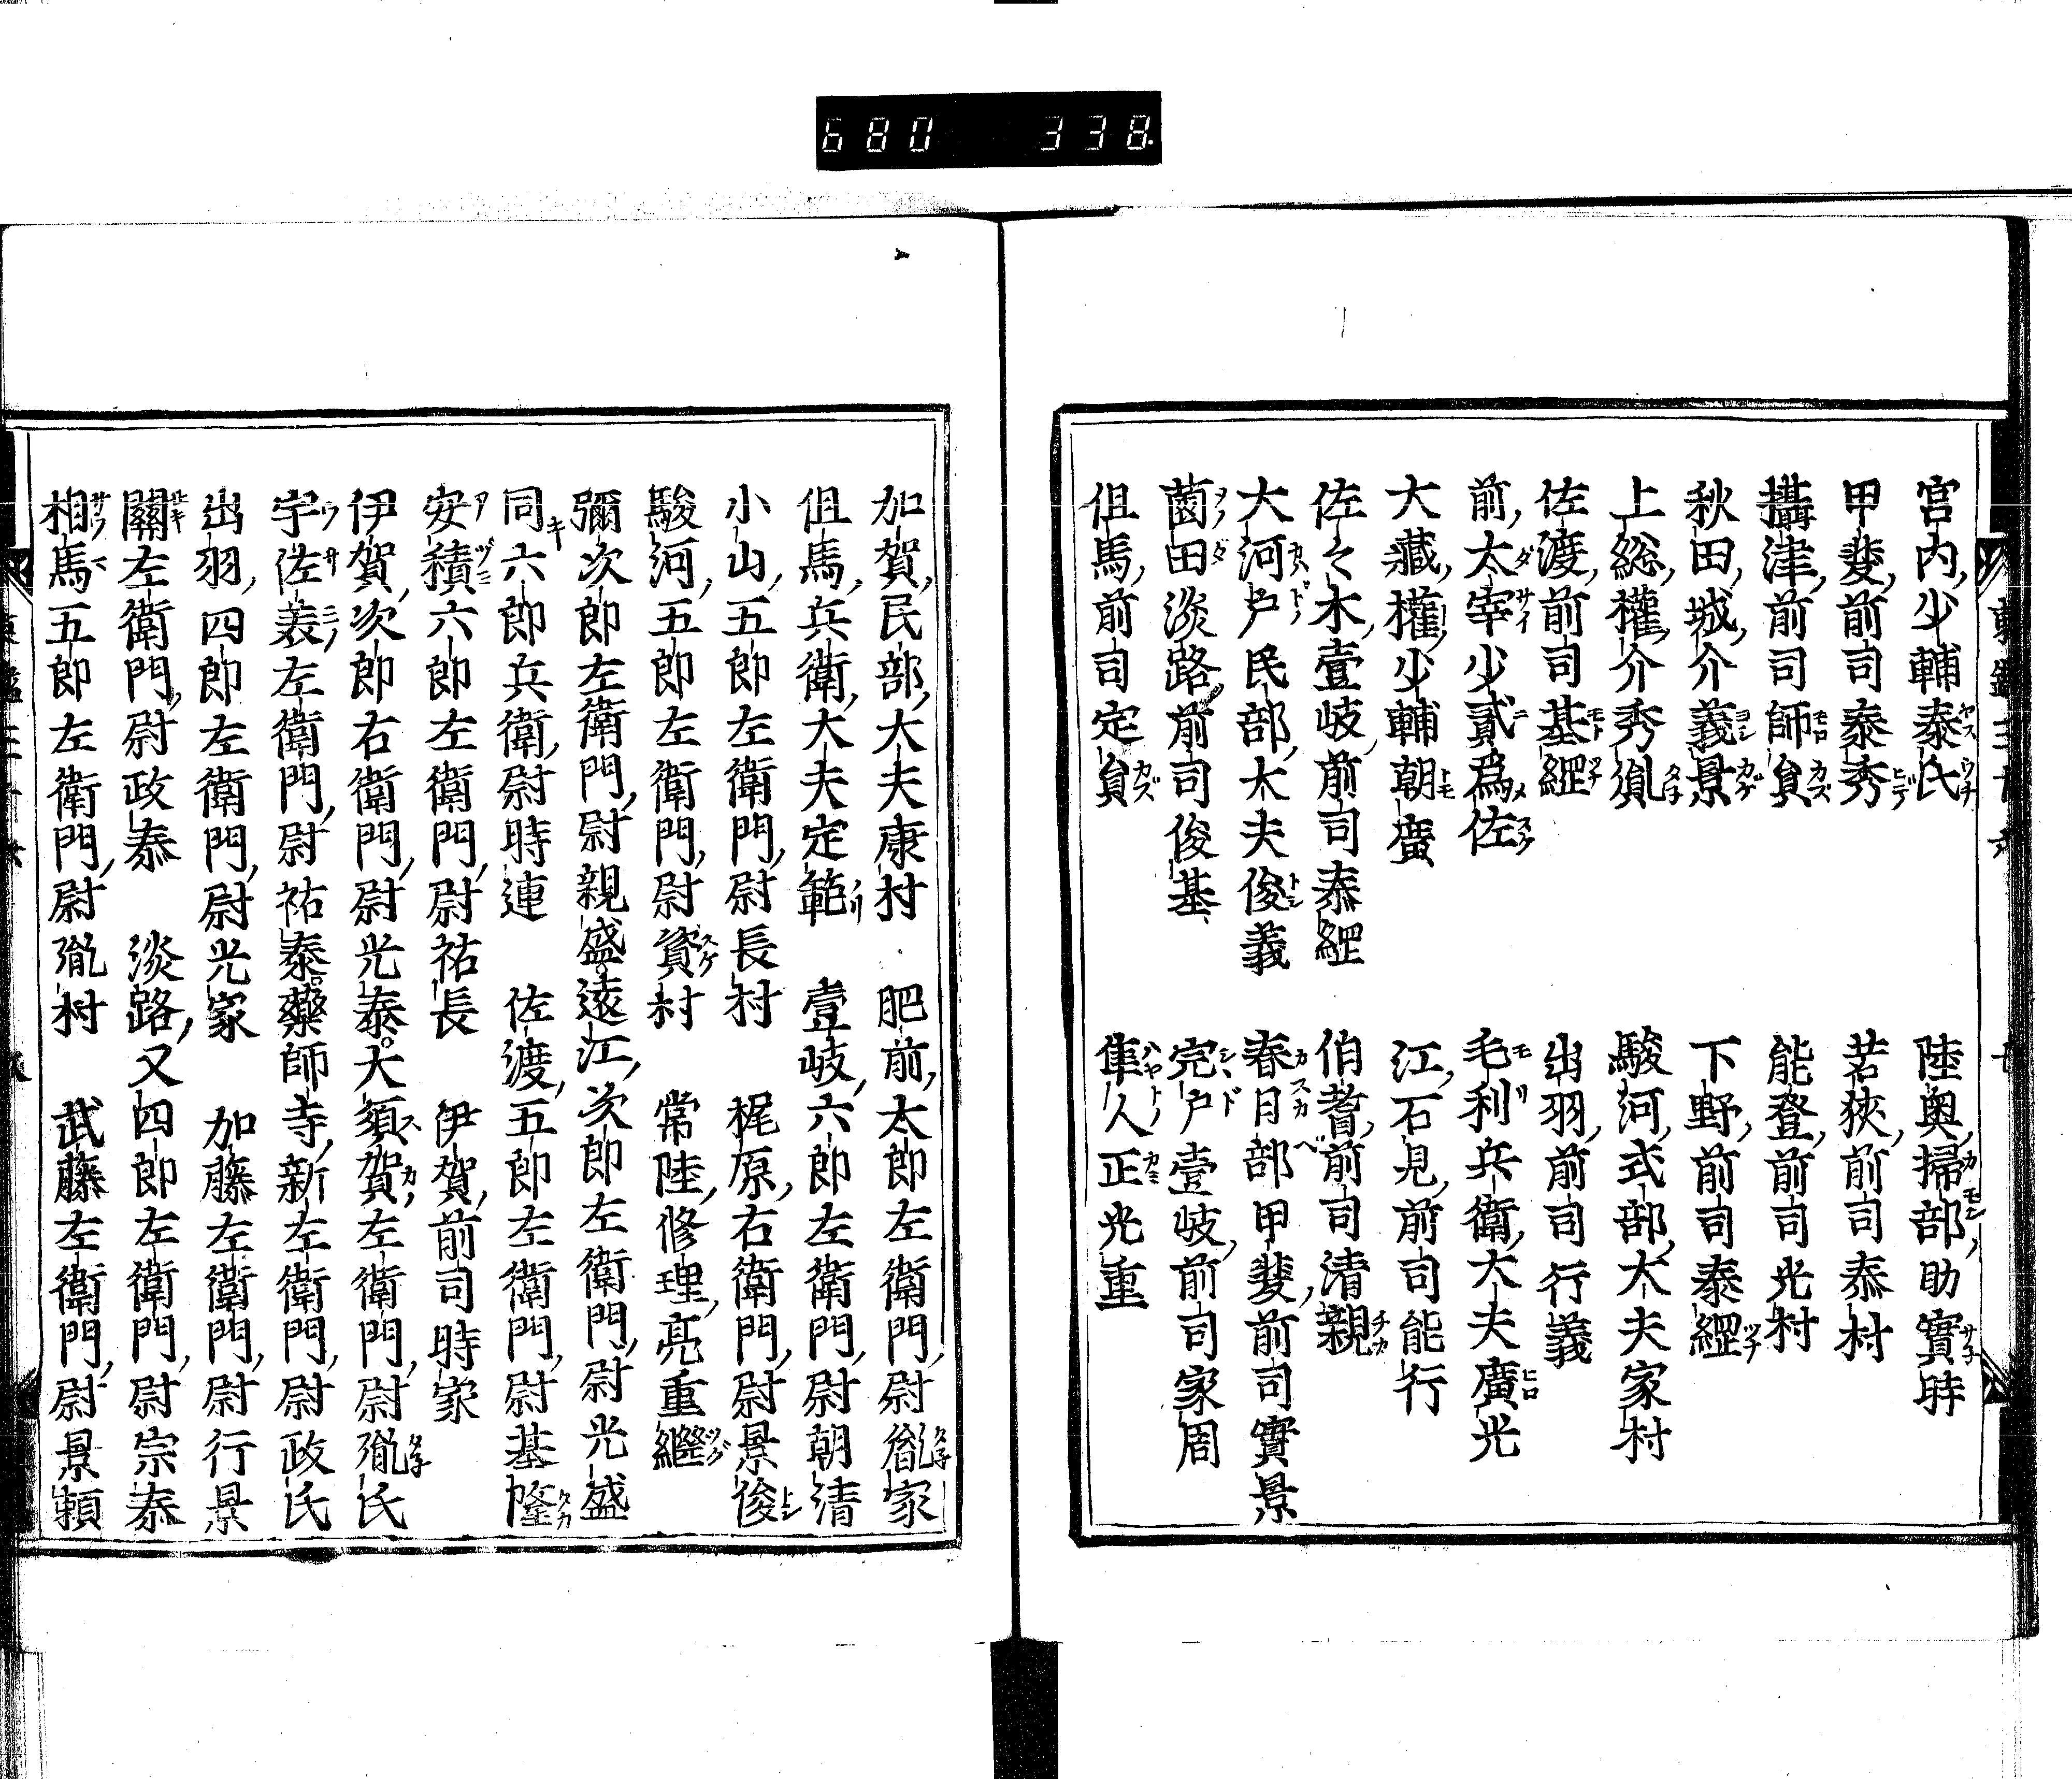 680 338.
宮内少輔泰氏 陸奥掃部助實時
甲斐前司泰秀 若狹前司泰村
攝津前司師員 能登前司光村
秋田城介義景 下野前司泰經
上総權介秀胤 駿河式部大夫家村
佐渡前司基綱 出羽前司行義
前太宰少貳爲佐 毛利兵衛大夫廣光
大藏權少輔朝廣 江石見前司能行
佐々木壹岐前司泰綱 伯耆前司清親
大河戸民部太夫俊義 春日部甲斐前司實景
薗田淡路前司俊基 宍戸壹岐前司家周
但馬前司定員 隼人正光重
加賀民部大夫康村 肥前太郎左衛門尉胤家
但馬兵衛大夫定範 壹岐六郎左衛門尉朝清
小山五郎左衛門尉長村 梶原右衛門尉景俊
駿河五郎左衛門尉資村 常陸修理亮重繼
彌次郎左衛門尉親盛 遠江次郎左衛門尉光盛
同六郎兵衛尉時連 佐渡五郎左衛門尉基隆
安積六郎左衛門尉祐長 伊賀前司時家
伊賀次郎右衛門尉光泰 大須賀左衛門尉胤氏
宇佐美左衛門尉祐泰 藥師寺新左衛門尉政氏
出羽四郎左衛門尉光家 加藤左衛門尉行景
關左衛門尉政泰 淡路又四郎左衛門尉宗泰
相馬五郎左衛門尉胤村 武藤左衛門尉景頼